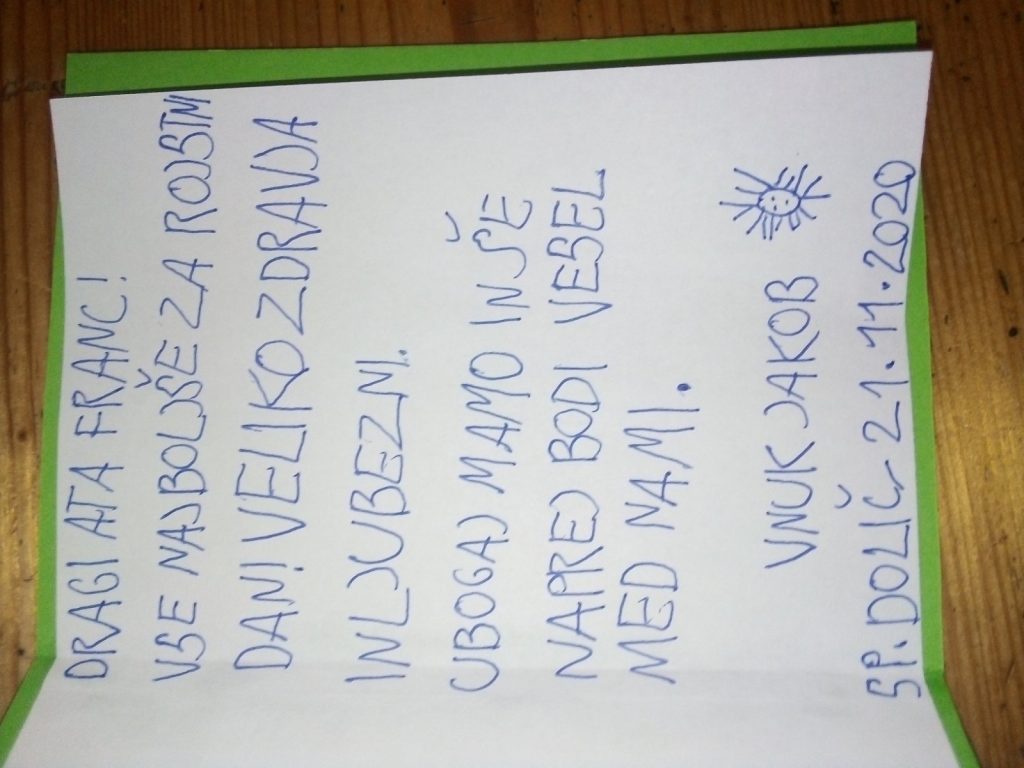 DRAGI ATA FRANC!
VSE NAJBOLJŠE ZA ROJSTNI
DAN! VELIKO ZDRAVJA
IN LJUBEZNI.
UBOGAJ MAMO IN ŠE
NAPREJ BODI VESEL
MED NAMI.
VNUK JAKOB
SP. DOLIČ 21.11.2020